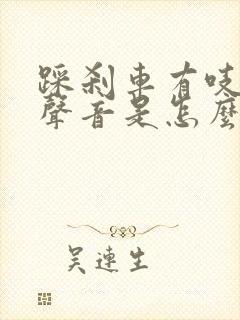 踩剎車有吱
聲音是怎麼
吴連生